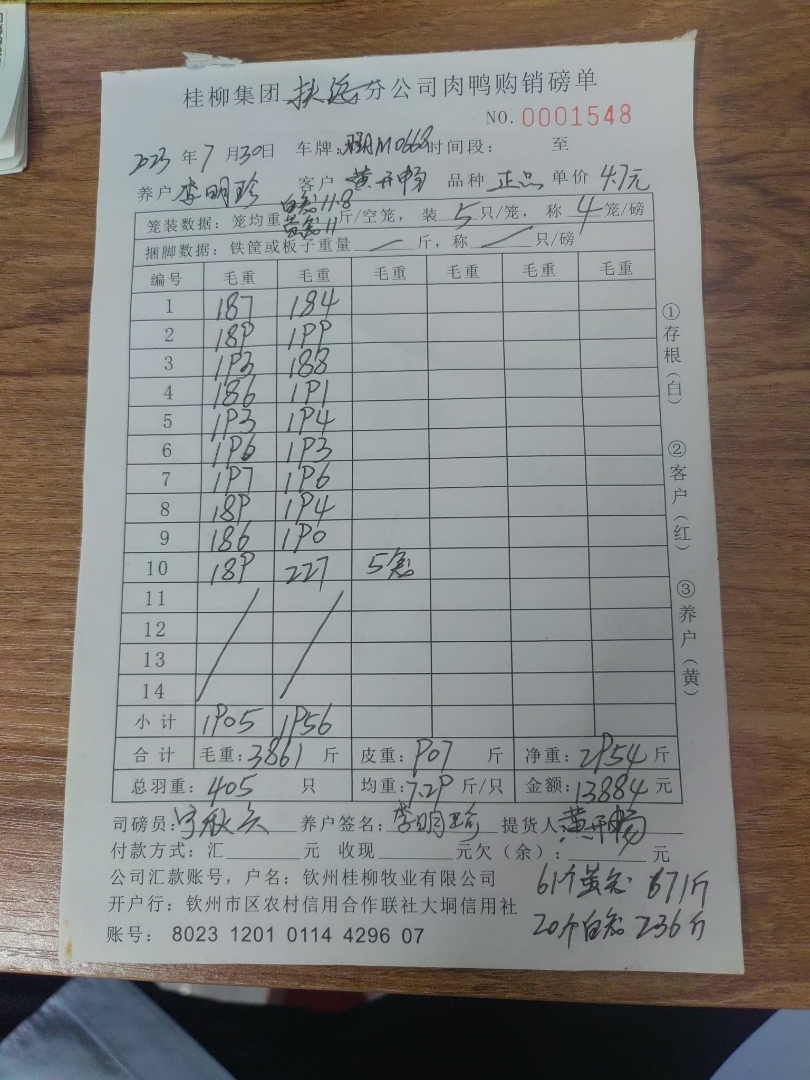 桂柳集团 扶远 分公司肉鸭购销磅单
NO. 0001548
2023 年 7 月 30 日 车牌: M0668 时间段: 至
养户 李明珍 客户 黄开畅 品种 正品 单价 4.7元
白笼 11.8
笼装数据: 笼均重 黄笼 11 斤/空笼, 装 5 只/笼, 称 4 笼/磅
捆脚数据: 铁筐或板子重量 / 斤, 称 / 只/磅
编号 毛重 毛重 毛重 毛重 毛重 毛重
1 187 184
2 189 199
3 193 188
4 186 191
5 193 194
6 196 193
7 197 196
8 189 194
9 186 190
10 189 227 5笼
11
12
13
14
小计 1905 1956
合计 毛重: 3861 斤 皮重: 907 斤 净重: 2954 斤
总羽重: 405 只 均重: 7.29 斤/只 金额: 13884 元
司磅员: 养户签名: 李明珍 提货人: 黄开畅
付款方式: 汇 元 收现 元欠(余): 元
公司汇款账号, 户名: 钦州桂柳牧业有限公司
61个黄笼 671斤
开户行: 钦州市区农村信用合作联社大垌信用社
20个白笼 236斤
账号: 8023 1201 0114 4296 07
①存根(白)
②客户(红)
③养户(黄)